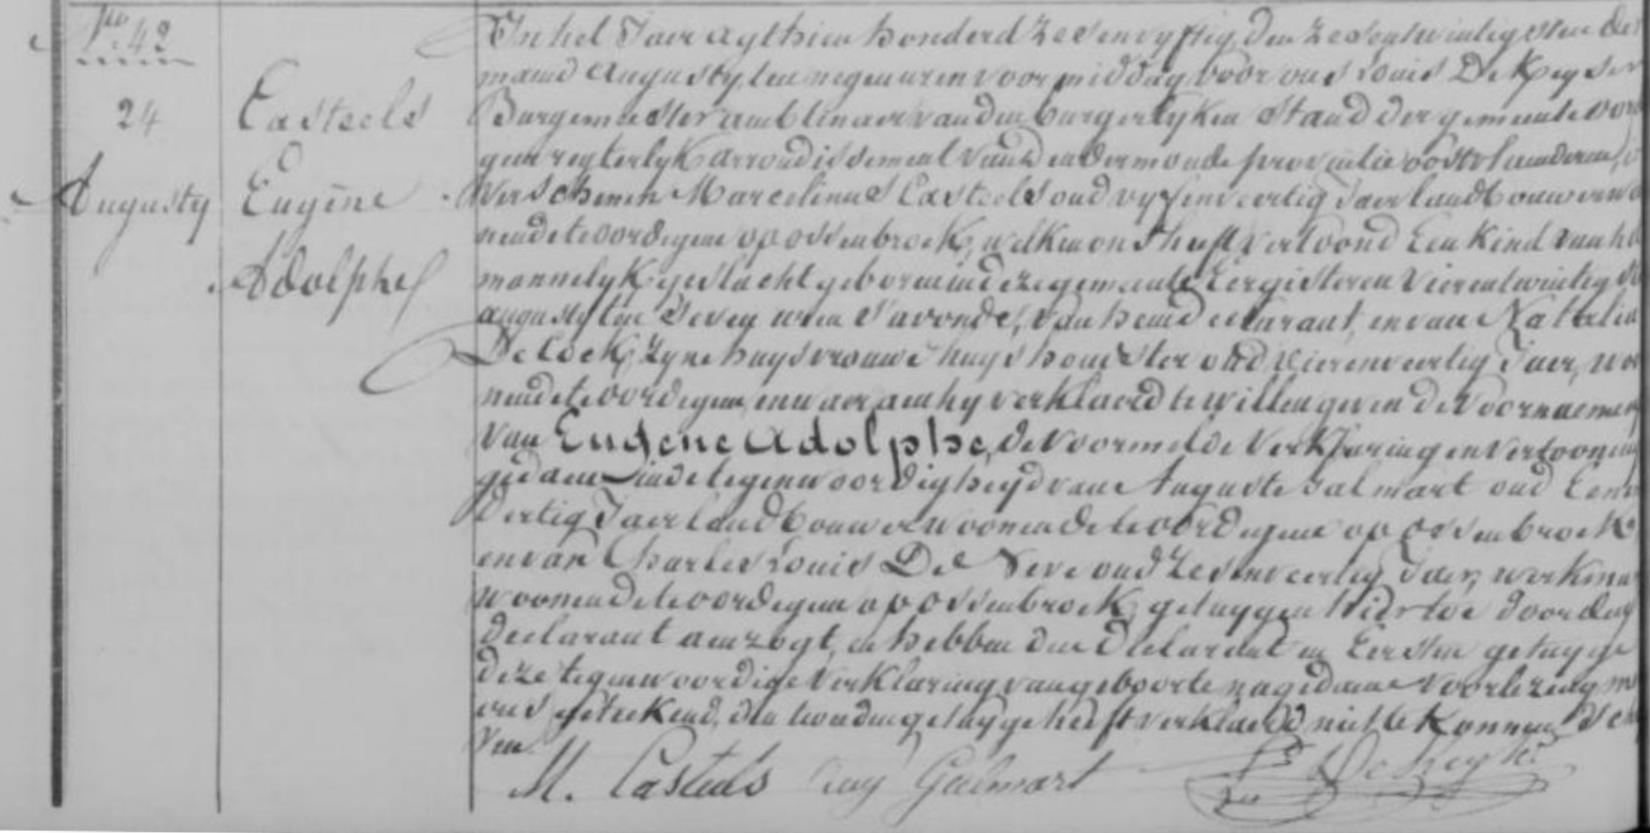 No. 42
24
Augusty
Casteels
Eugène
Adolphe
In het Jaer agthien honderd zesenvyftig den zesentwintigsten der
maend Augusty, ten negen uren voormiddag voor ons Louis De Keyser
Burgemeester ambtenaer van den burgerlyken Stand der gemeente
geregterlyk arrondissement van Dendermonde provintie oostvlaenderen,
Verscheenen Marcelinus Casteels oud vyfenveertig Jaer landbouwer
nende te oordegem op ossenbroek, welke aen ons heeft vertoond Een kind van het
mannelyk geslacht geboren in deze gemeente Eergisteren vierentwintig
augusty ten seven uren s'avonds, van hem declarant, en van Natalia
De Cock, zyne huysvrouwe huyshoudster oud vierenveertig Jaer, wo
nende te oordegem, en waer aen hy verklaerd te willen geven de voornaemen
van Eugene Adolphe, de voormelde Verklaring en vertooning
gedaen in de tegenwoordigheyd van Auguste Galmart oud Een
dertig Jaer landbouwer woonende te oordegem op ossenbroek
en van Charles Louis De Neve oud zesenveertig Jaer, werkman
woonende te oordegem op ossenbroek, getuygen hier toe door den
declarant aenzogt, en hebben den declarant en Eersten getuyge
deze tegenwoordige verklaring van geboorte na gedaene voorlezing
ons geteekend, den tweeden getuyge heeft verklaerd niet te konnen schry
ven
M. Casteels Aug Galmart L De Keyser